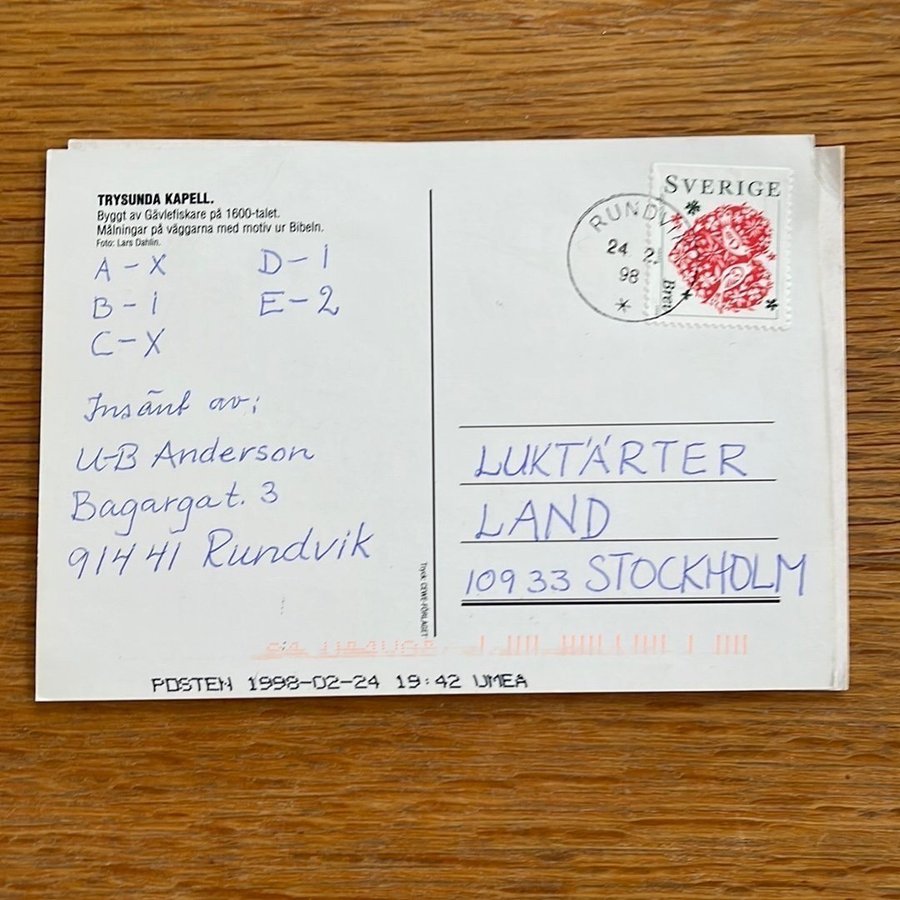 TRYSUNDA KAPELL.
Byggt av Gävlefiskare på 1600-talet.
Målningar på väggarna med motiv ur Bibeln.
Foto: Lars Dahlin.
A-X D-1
B-1 E-2
C-X
Insänt av;
U-B Anderson
Bagargat. 3
914 41 Rundvik
Tryck: CEWE-FÖRLAGET
SVERIGE
Brev
RUNDVIK
24 2.
98
*
LUKTÄRTER
LAND
109 33 STOCKHOLM
POSTEN 1998-02-24 19:42 UMEA